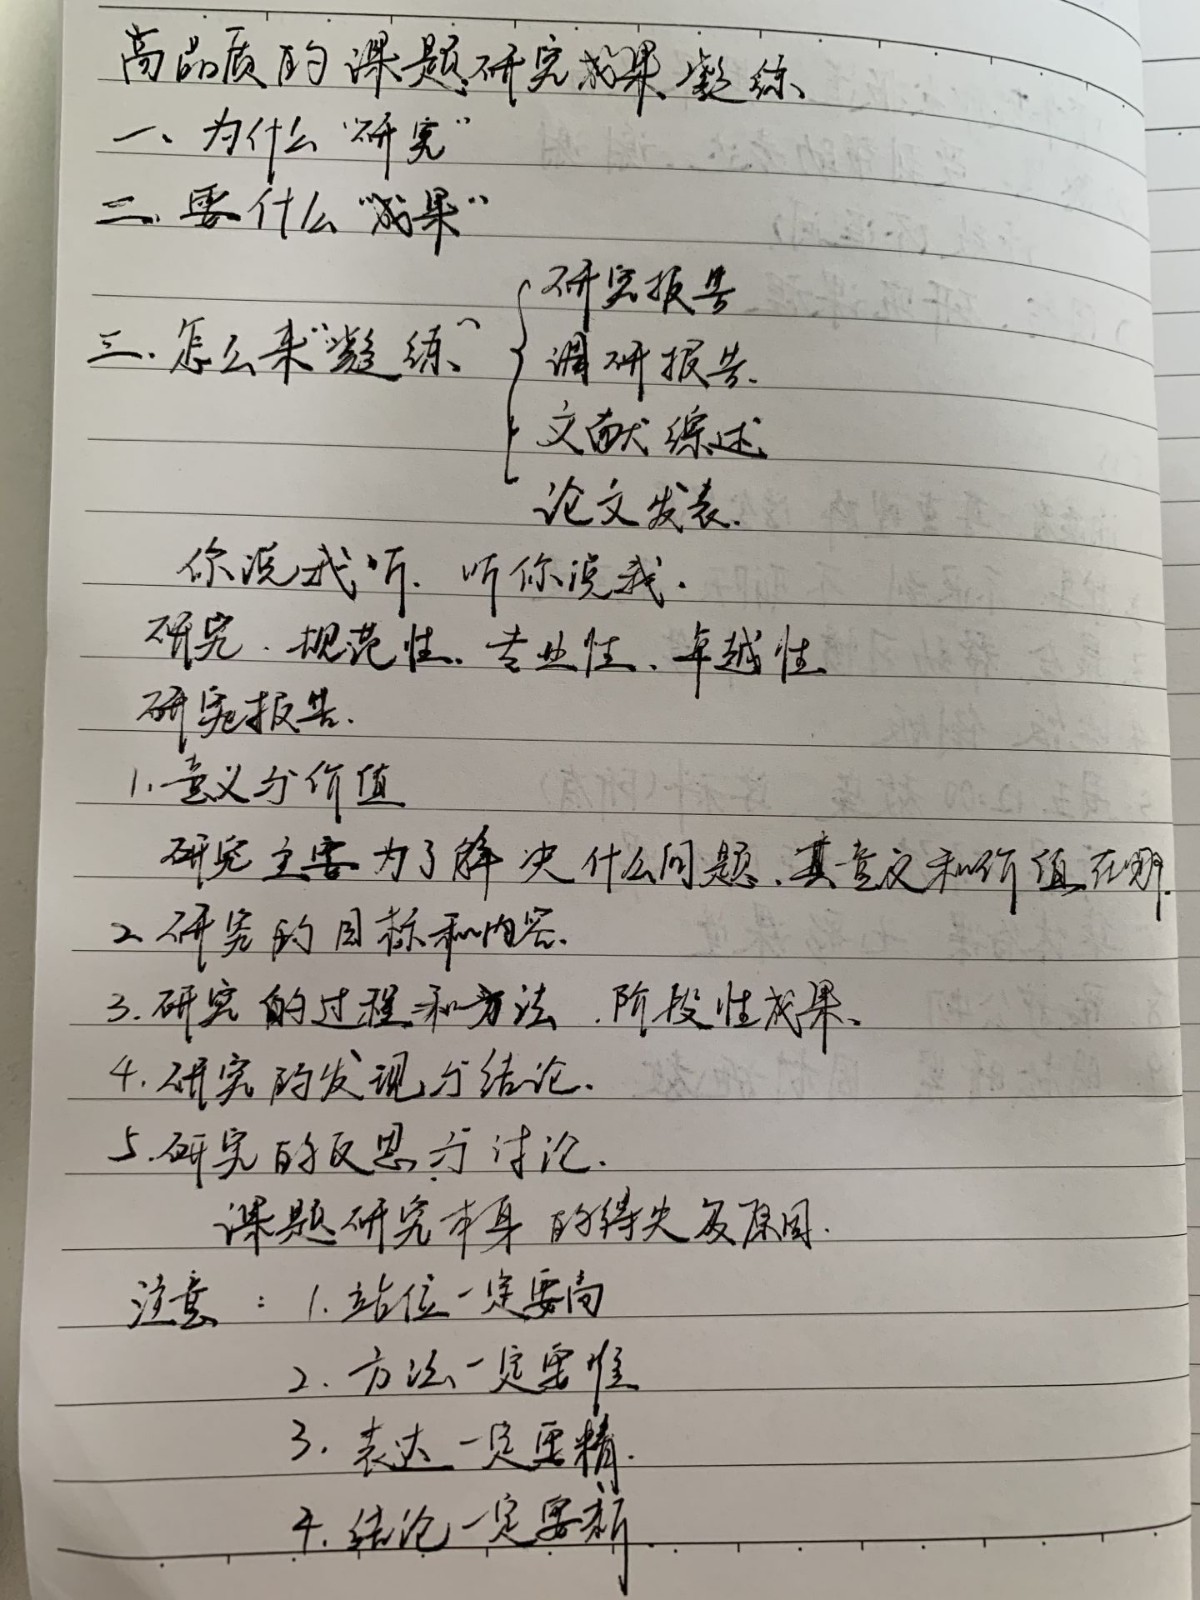 高品质的课题研究成果凝练
一、为什么“研究”
二、要什么“成果”
三、怎么来“凝练”
研究报告
调研报告.
文献综述
论文发表.
你说我听. 听你说我.
研究. 规范性、专业性、卓越性
研究报告.
1.意义与价值
研究主要为了解决什么问题、其意义和价值在哪.
2.研究的目标和内容.
3.研究的过程和方法.阶段性成果、
4.研究的发现与结论.
5.研究的反思与讨论.
课题研究本身的得失及原因.
注意：1.站位一定要高
2.方法一定要准
3.表达一定要精.
4.结论一定要新